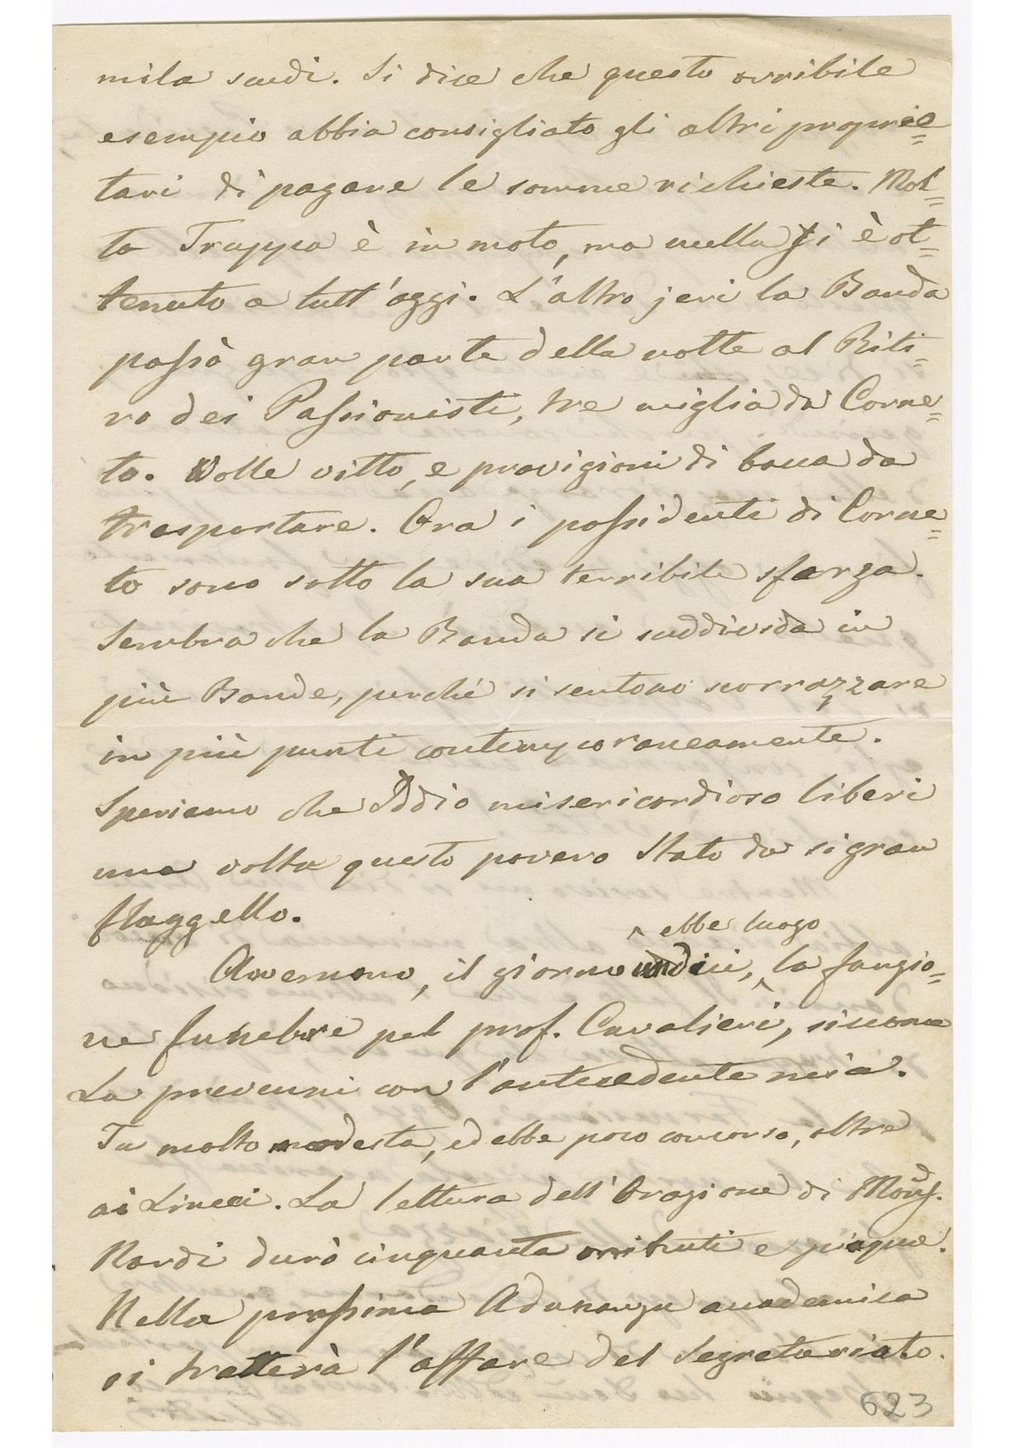 mila scudi. Si dice che questo orribile
esempio abbia consigliato gli altri proprie=
tari di pagare le somme richieste. Mol=
ta Truppa è in moto, ma nulla si è ot=
tenuto a tutt'oggi. L'altro jeri la Banda
passò gran parte della notte al Riti=
ro dei Passionisti, tre miglia da Corne=
to. Volle vitto, e provigioni di bocca da
trasportare. Ora i possidenti di Corne=
to sono sotto la sua terribile sferza.
Sembra che la Banda si suddivida in
più Bande, perché si sentono scorrazzare
in più punti contemporaneamente.
Speriamo che Iddio misericordioso liberi
una volta questo povero Stato da sì gran
flaggello.
ebbe luogo
Avemmo, il giorno undici, la funzio=
ne funebre pel prof. Cavalieri, siccome
La prevenni con l'antecedente mia.
Fu molto modesta, ed ebbe poco concorso, oltre
ai Lincei. La lettura dell'Orazione di Monsig.
Nardi durò cinquanta minuti e piacque.
Nella prossima Adunanza accademica
si tratterà l'affare del Segretariato.
623